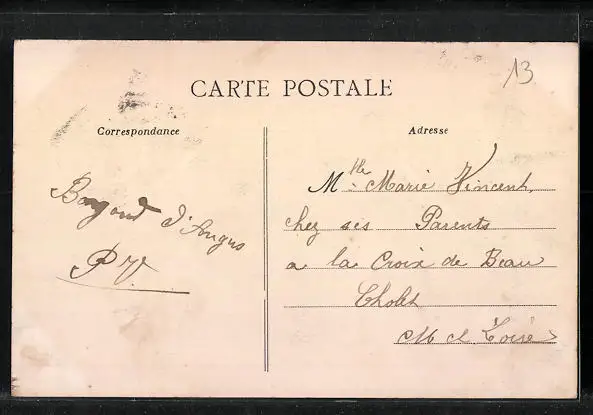 13
CARTE POSTALE
Correspondance
Adresse
Mlle Marie Vincent
chez ses Parents
a la Croix de Beau
Cholet
M et Loire
d'Angus
PV